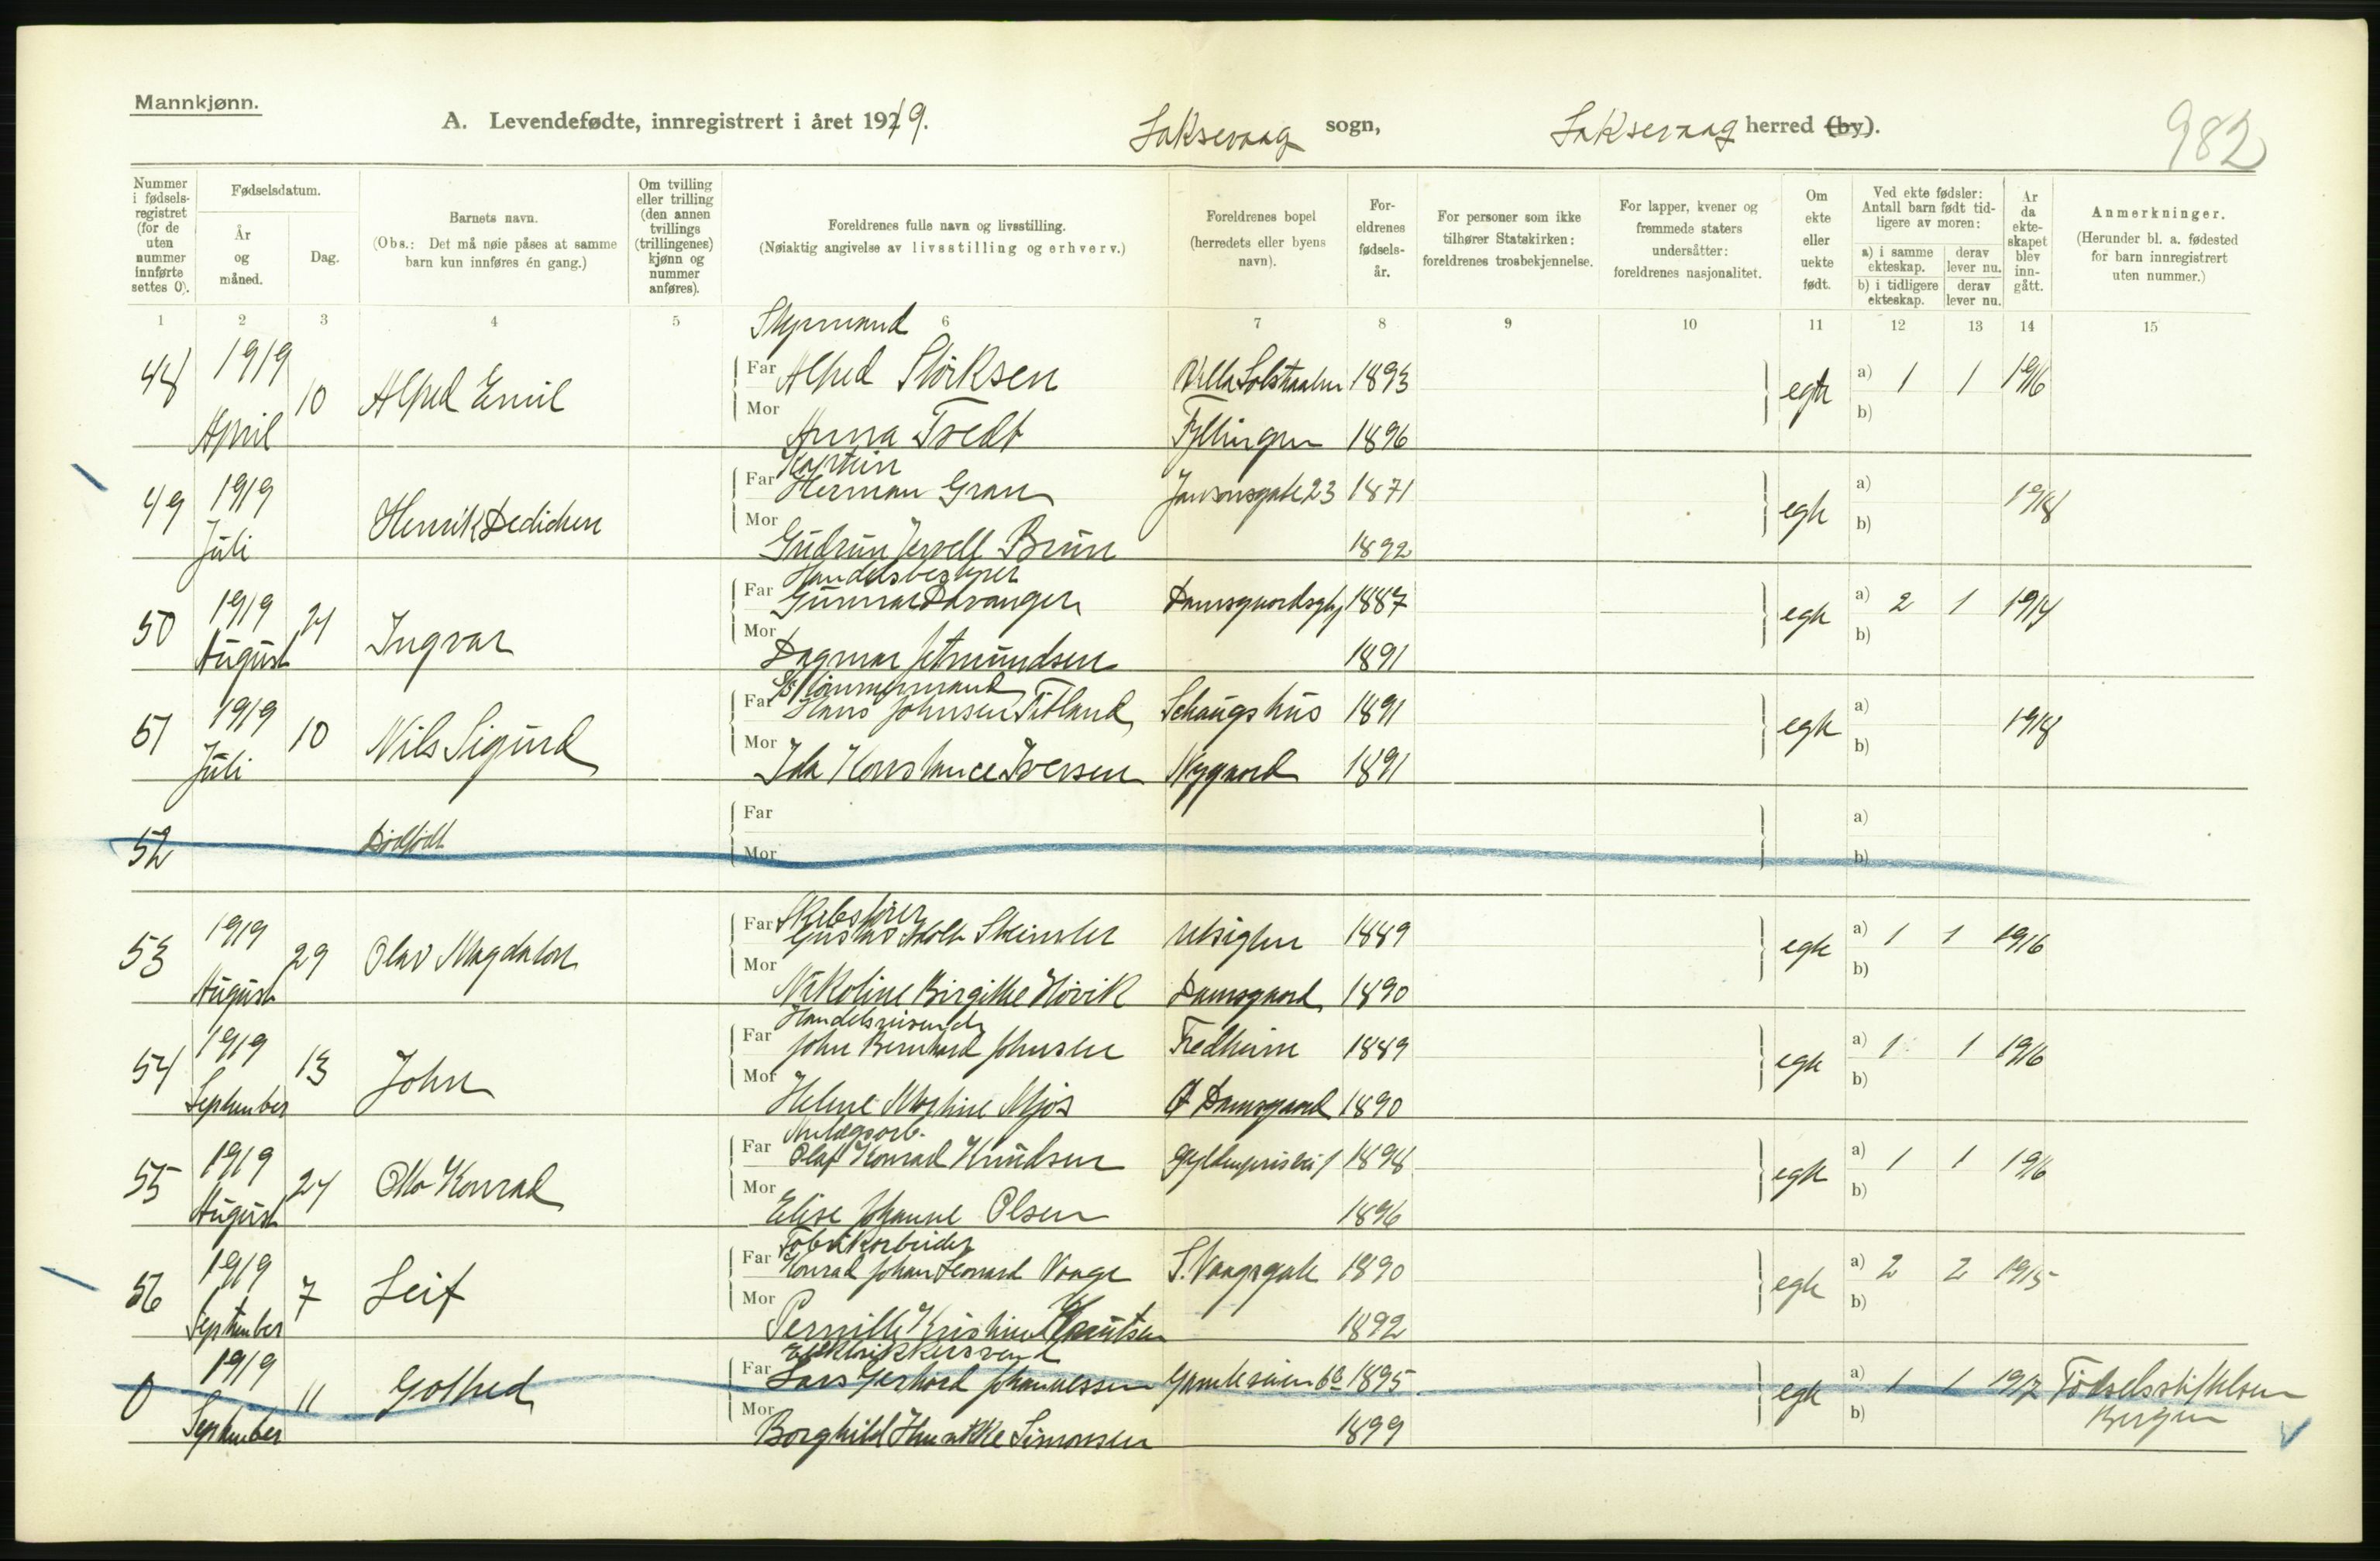 Mannkjønn.
A. Levendefødte, innregistrert i året 1919.
Laksevaag sogn,
Laksevaag herred (by).
982
Nummer i fødsels-registret (for de uten nummer innførte settes 0).
Fødselsdatum.
År og måned.
Dag.
Barnets navn.
(Obs.: Det må nøie påses at samme barn kun innføres én gang.)
Om tvilling eller trilling (den annen tvillings (trillingenes) kjønn og nummer anføres).
Foreldrenes fulle navn og livsstilling.
(Nøiaktig angivelse av livsstilling og erhverv.)
Foreldrenes bopel (herredets eller byens navn).
For-eldrenes fødsels-år.
For personer som ikke tilhører Statskirken: foreldrenes trosbekjennelse.
For lapper, kvener og fremmede staters undersåtter: foreldrenes nasjonalitet.
Om ekte eller uekte født.
Ved ekte fødsler: Antall barn født tid-ligere av moren:
a) i samme ekteskap.
derav lever nu.
b) i tidligere ekteskap.
derav lever nu.
År da ekte-skapet blev inn-gått.
Anmerkninger.
(Herunder bl. a. fødested for barn innregistrert uten nummer.)
1 2 3 4 5 6 7 8 9 10 11 12 13 14 15
Styrmand
48 1919 April 10 Alfred Emil Far Alfred Storksen Villa Solstraalen 1893 egte a) 1 1 1916
Mor Anna Tvedt Fyllingen 1896 b)
Kaptein
49 1919 Juli Henrik Dedichen Far Herman Gran Jansonsgate 23 1871 egte a) 1918
Mor Gudrun Jervell Brun 1892 b)
Handelsbestyrer
50 1919 August Ingvar Far Gunnar Davanger 1887 egte a) 2 1 1914
Mor Dagmar Amundsen 1891 b)
51 1919 Juli 10 Nils Sigurd Far Hans Johnsen Titland Schaugshus 1891 egte a) 1918
Mor Ida Konstance Iversen Nygaard 1891 b)
52 Dødfødt Far a)
Mor b)
Skibsfører
53 1919 August 29 Olav Magdalon Far Gustav Adolf Utsigten 1889 egte a) 1 1 1916
Mor Nikoline Birgitte Hövik Damsgaard 1890 b)
Handelsreisende
54 1919 September 13 John Far John Bernhard Johnsen Fredheim 1889 egte a) 1 1 1916
Mor Helene Martine Mjøs Damsgaard 1890 b)
Anlægsarb.
55 1919 August 24 Otto Konrad Far Olaf Konrad Knudsen Gyldenprisvei 1 1898 egte a) 1 1 1916
Mor Elise Johanne Olsen 1896 b)
Fabrikarbeider
56 1919 September 7 Leif Far Konrad Johan Leonard Vaage S. Vaagsgate 1890 egte a) 2 2 1915
Mor Pernille Kristine Knutsen 1892 b)
Elektrikkersvend
0 1919 September 11 Gotfred Far Lars Gerhard Johannessen Gamleveien 6 1895 egte a) 1 1 1917 Födselsstiftelsen
Mor Borghild Simonsen 1899 b) Bergen